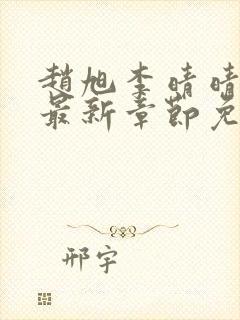 趙旭李晴晴
最新章節免
邢宇